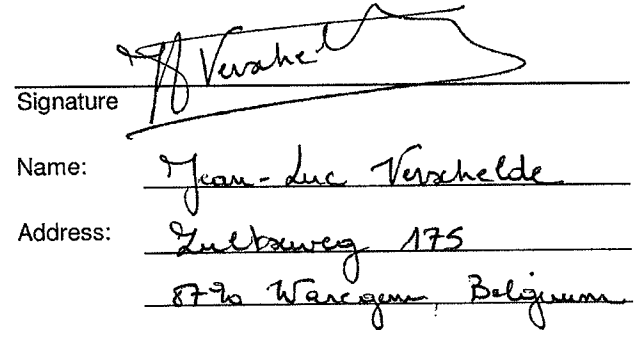 Verschel
Signature
Name: Jean-Luc Verschelde
Address: Zultseweg 175
8790 Waregem, Belgium